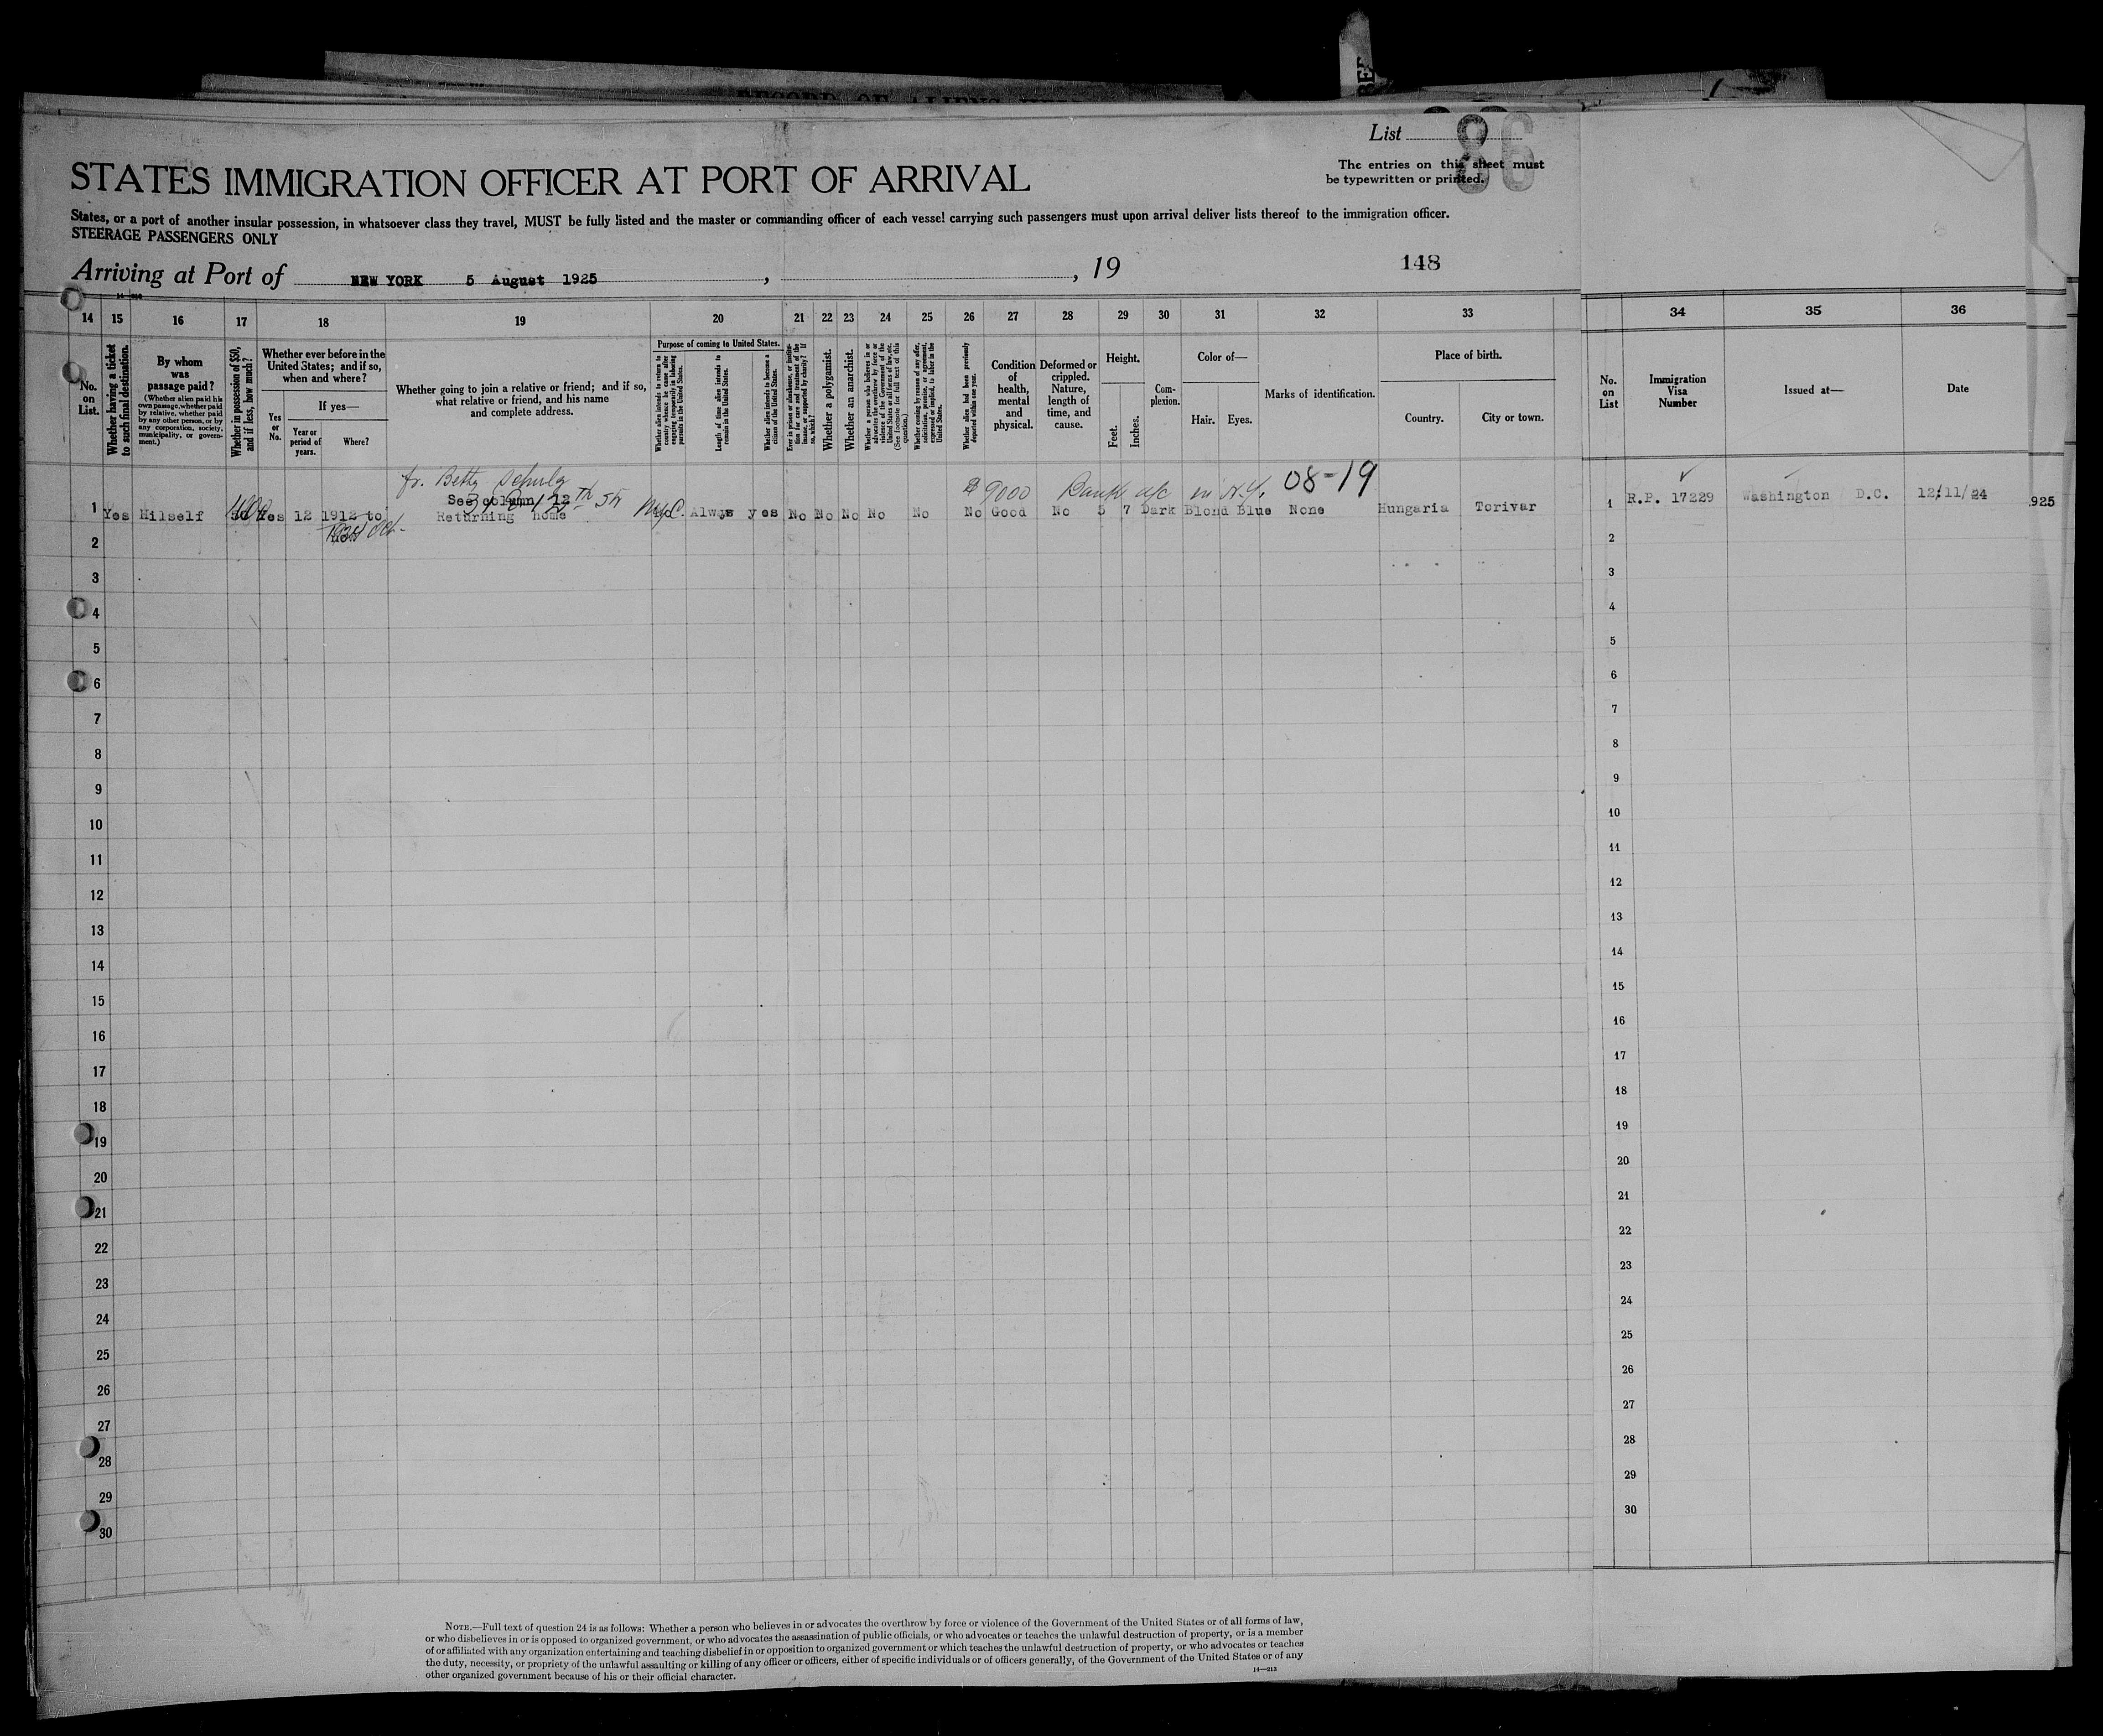 RECORD OF ALIENS
List 86
The entries on this sheet must
be typewritten or printed.
STATES IMMIGRATION OFFICER AT PORT OF ARRIVAL
States, or a port of another insular possession, in whatsoever class they travel, MUST be fully listed and the master or commanding officer of each vessel carrying such passengers must upon arrival deliver lists thereof to the immigration officer.
STEERAGE PASSENGERS ONLY
Arriving at Port of NEW YORK 5 August 1925, , 19
148
14 15 16 17 18 19 20 21 22 23 24 25 26 27 28 29 30 31 32 33 34 35 36
No. on List.
Whether having a ticket to such final destination.
By whom was passage paid?
(Whether alien paid his own passage, whether paid by relative, whether paid by any other person, or by any corporation, society, municipality, or government.)
Whether in possession of $50, and if less, how much?
Whether ever before in the United States; and if so, when and where?
Yes or No.
If yes—
Year or period of years.
Where?
Whether going to join a relative or friend; and if so, what relative or friend, and his name and complete address.
Purpose of coming to United States.
Whether alien intends to return to country whence he came after engaging temporarily in laboring pursuits in the United States.
Length of time alien intends to remain in the United States.
Whether alien intends to become a citizen of the United States.
Ever in prison or almshouse, or institution for care and treatment of the insane, or supported by charity? If so, which?
Whether a polygamist.
Whether an anarchist.
Whether a person who believes in or advocates the overthrow by force or violence of the Government of the United States or all forms of law, etc. (See footnote for full text of this question.)
Whether coming by reason of any offer, solicitation, promise, or agreement, expressed or implied, to labor in the United States.
Whether alien had been previously deported within one year.
Condition of health, mental and physical.
Deformed or crippled. Nature, length of time, and cause.
Height.
Feet.
Inches.
Complexion.
Color of—
Hair.
Eyes.
Marks of identification.
Place of birth.
Country.
City or town.
No. on List
Immigration Visa Number
Issued at—
Date
fr. Betty Schulz
See column 12
$ 9000 Bank a/c in N.Y. 08-19
1 Yes Hilself Yes 12 1912 to Returning home N.Y.C. Always yes No No No No No No Good No 5 7 Dark Blond Blue None Hungaria Torivar 1 R.P. 17229 Washington D.C. 12/11/24 925
2 2
3 3
4 4
5 5
6 6
7 7
8 8
9 9
10 10
11 11
12 12
13 13
14 14
15 15
16 16
17 17
18 18
19 19
20 20
21 21
22 22
23 23
24 24
25 25
26 26
27 27
28 28
29 29
30 30
NOTE.—Full text of question 24 is as follows: Whether a person who believes in or advocates the overthrow by force or violence of the Government of the United States or of all forms of law,
or who disbelieves in or is opposed to organized government, or who advocates the assassination of public officials, or who advocates or teaches the unlawful destruction of property, or is a member
of or affiliated with any organization entertaining and teaching disbelief in or opposition to organized government or which teaches the unlawful destruction of property, or who advocates or teaches
the duty, necessity, or propriety of the unlawful assaulting or killing of any officer or officers, either of specific individuals or of officers generally, of the Government of the United States or of any
other organized government because of his or their official character.
14—213